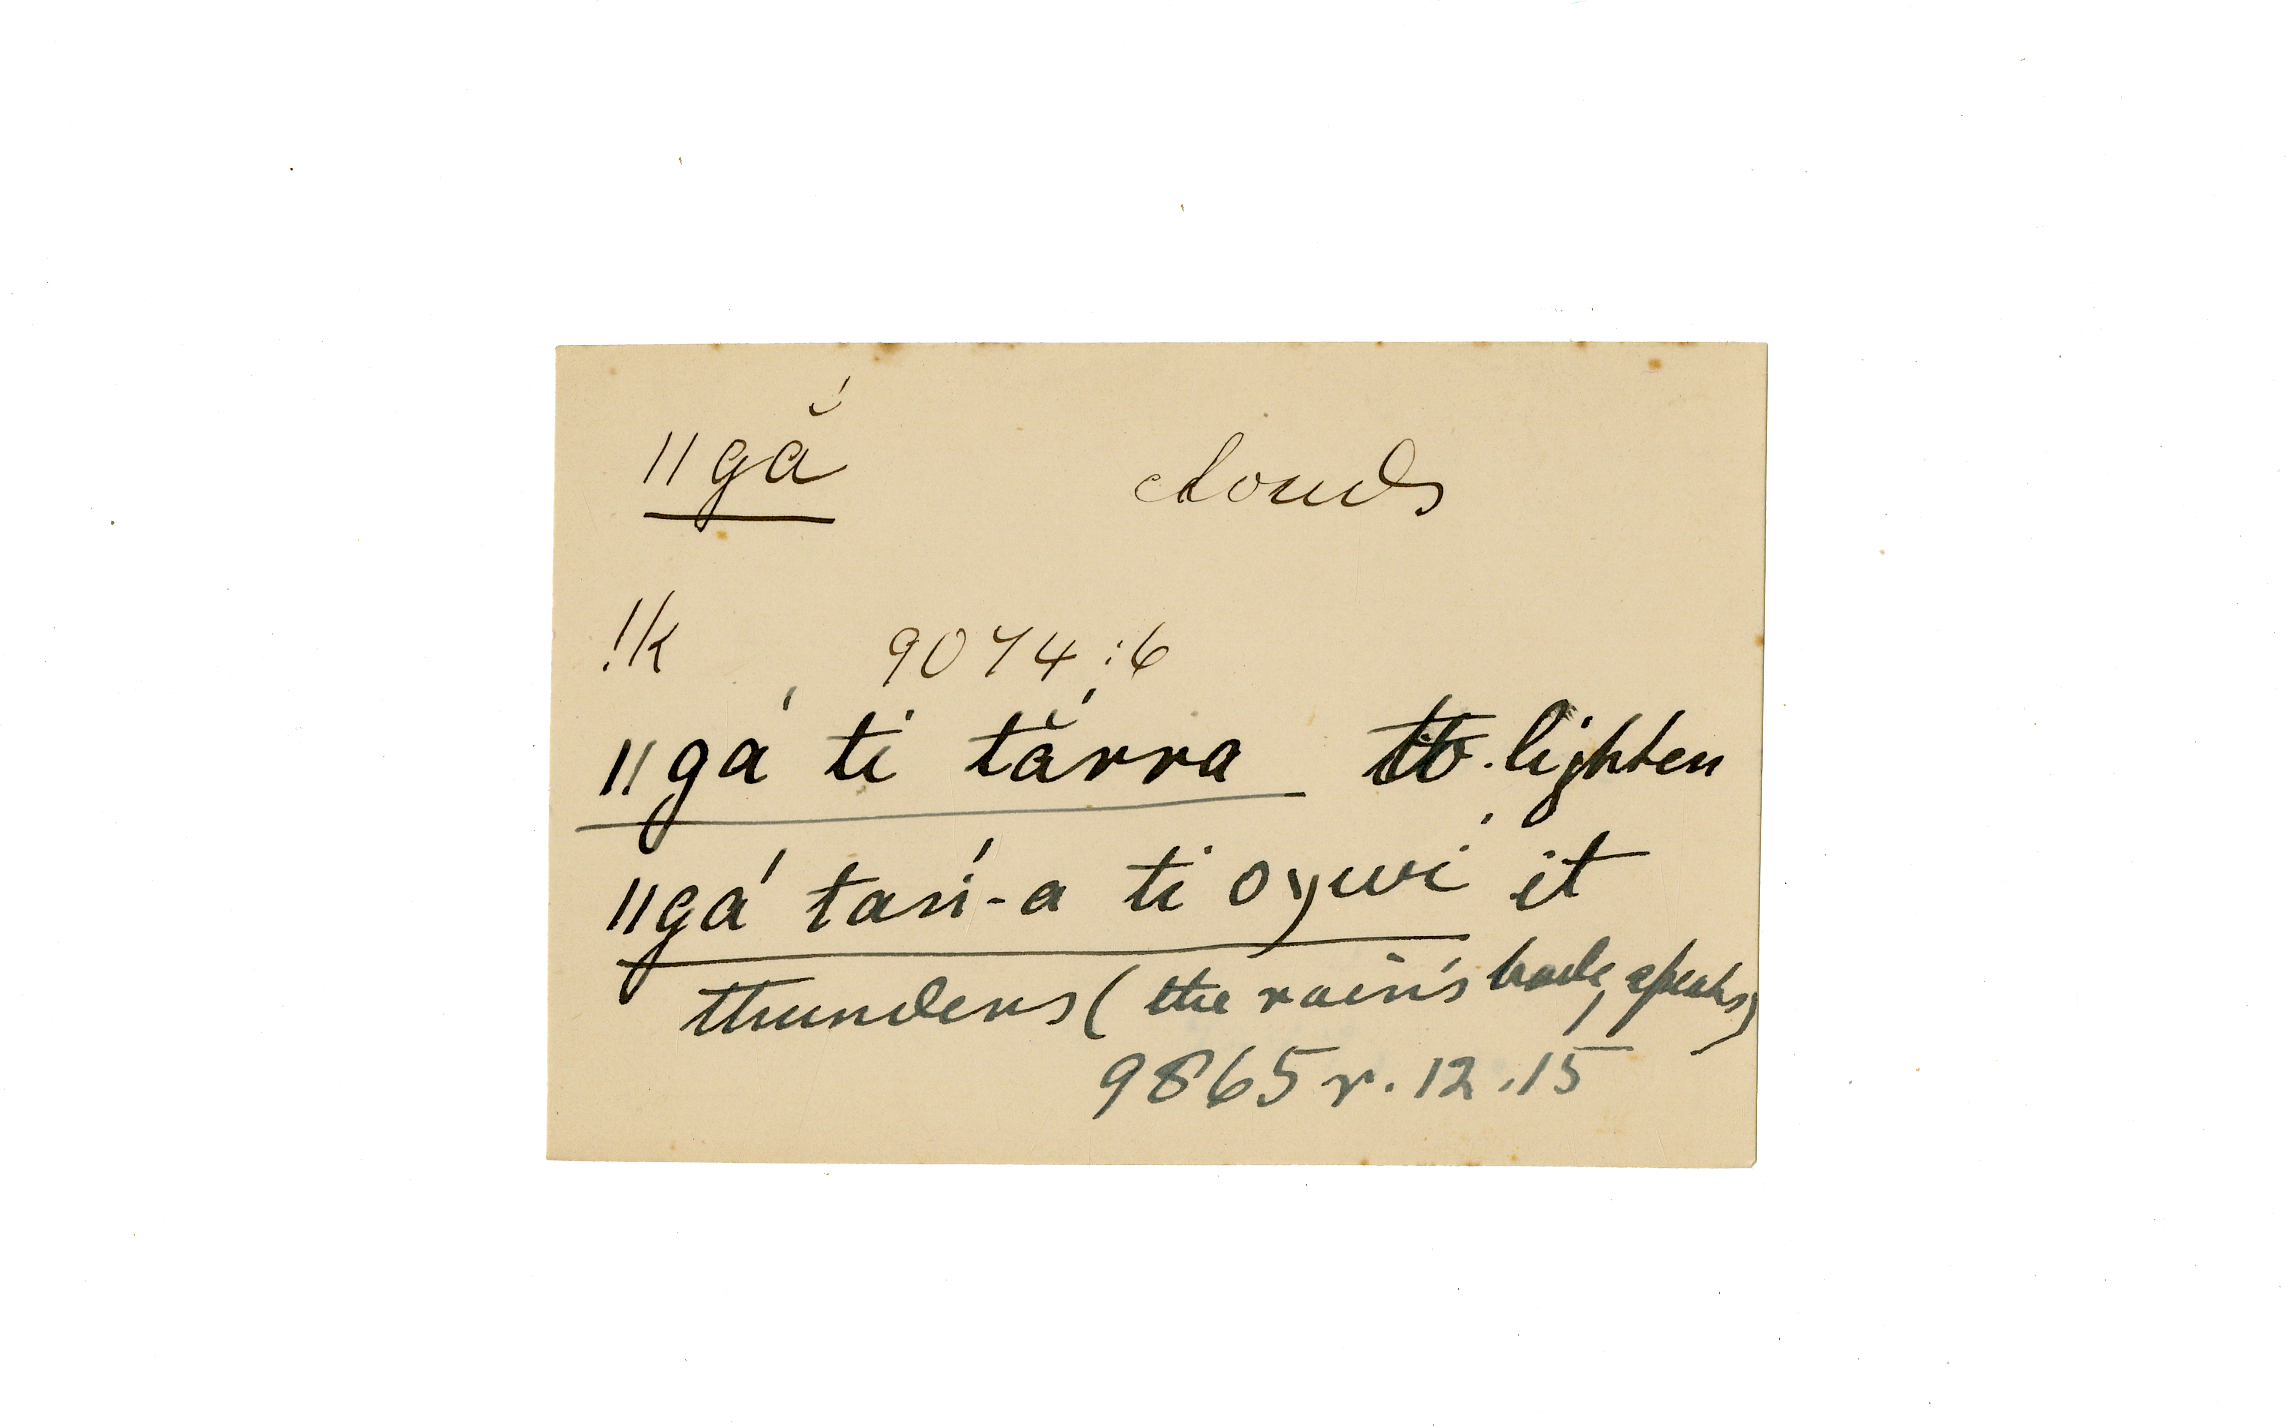 ǁgắ clouds
!k 9074:6
ǁgá ti tắrra to lighten
ǁgá tań-a ti oywí it
thunders (the rain's body speaks)
9865 r. 12.15